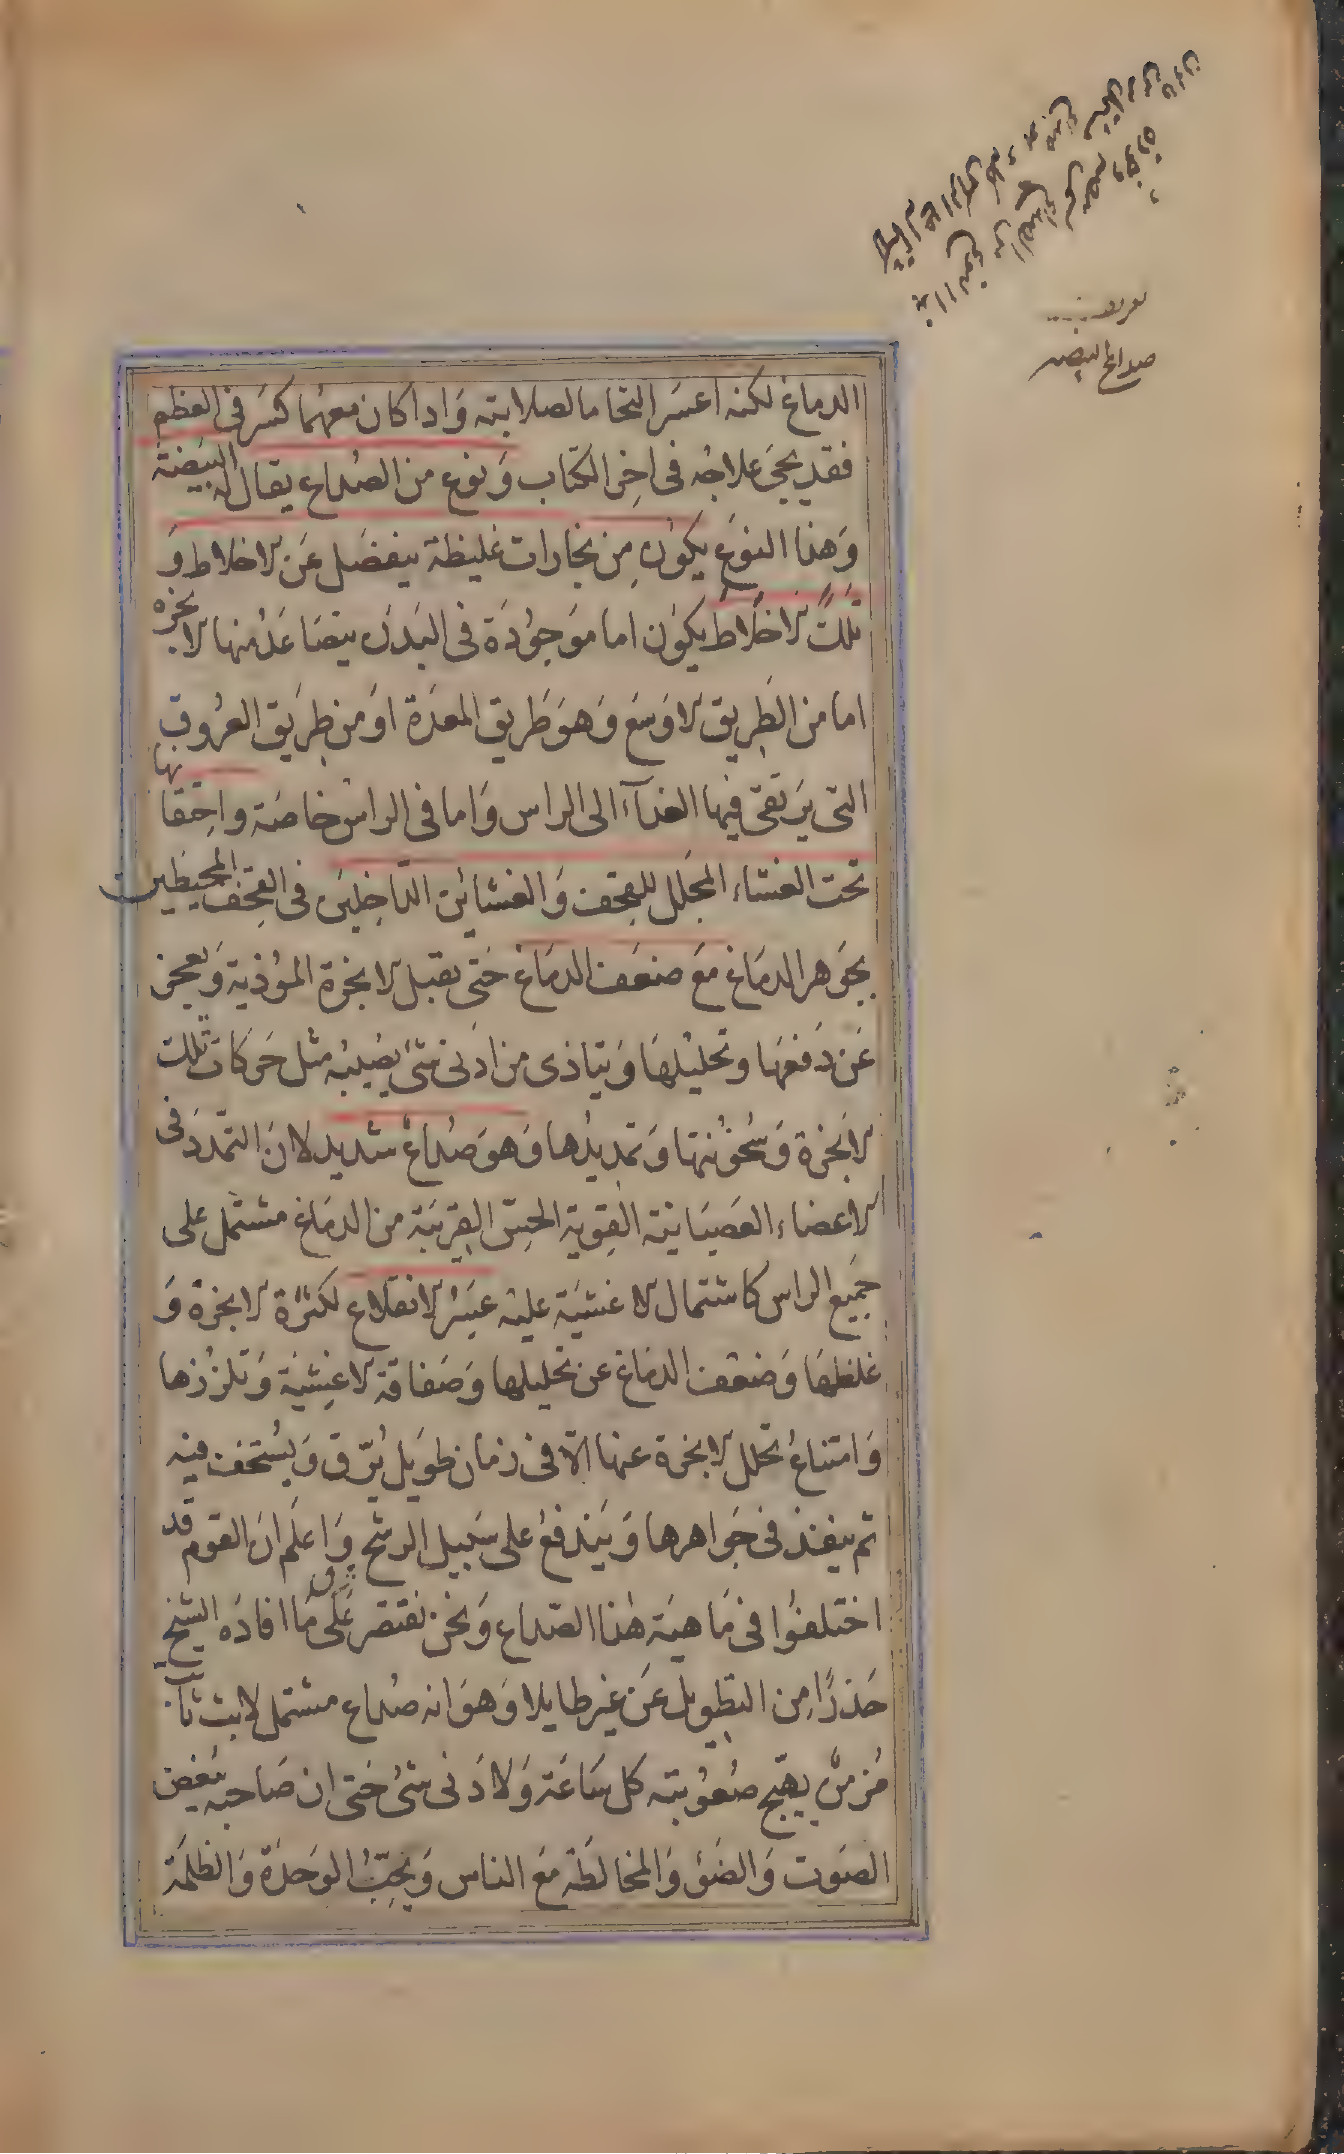 تعریف
صداع البیضه
الدماغ لكنه اعسر التحاما لصلابته وَاذا كان معهما كسَر فى العظم
فقد يجئ علاجه فى اخر الكتاب وَنوع من الصُداع يقال له البيَضة
وَهذا النوَع يكوُن مِن بخارات غليظة ينفصَل عَن الاخلاط وَ
تلكَ الاخلَاط يكوُن اما موَجوُدَة فى البَدن يتصَاعَدُ منها الابخره
اما من الطَريق الاوَسَع وَهوَ طَريق المعدَة اوَ من طرَيق العرُوق
التى يَرتقى فيها الغذآء الى الراس وَاما فى الراس خاصَة واحتقانها
تحت الغشاء المجلل للقحف وَالغشائين الدّاخِليَن فى القِحف المحيَطين
بجوَهر الدمَاغ مَع ضعَف الدمَاغ حَتى يقبل الابخرَة الموُذية وَيعجز
عَن دَفعهَا وتحليلهَا وَيتاذى من ادَنى شئ يصُيبُه مثل حَركات تلك
الابَخرة وَسُخوُنتها وَتمديدُها وَهوَ صُداعُ شديد لان التمَدّدَ فى
الاعضاء العصَبَانية القوِية الحِسّ القرَيبَة من الدمَاغ مشتمل على
جمَيع الراس كاشتمال الاغشيَة عليهْ عسِرُ الانقلاع لكثرَة الابخرة وَ
غلظهَا وَضعَف الدمَاغ عن تحليلها وَصَفاقة الاغِشيَة وَتلزُزها
وَامتناعُ تحلل الابخرة عنها الّا فى زمان طوَيل يُرّق وَيسُتحف فيه
ثم ينفذ فى جوَاهرها وَيَندفعُ على سَبيل الرشح وَاعلَم انَ القوم قد
اختلفوُا فى مَاهيَة هٰذا الصّداع وَنحَن نقتصر عَلَى مَا افادَه الشيخ
حَذرًا مِن التطوِيل عَن غيَر طايلا وَهوَ انه صُداع مشتمل لابث ثابت
مُزمنٌ يهيّج صُعوُبته كل سَاعَة وَلادَنى شئ حَتى ان صَاحبه يبُغض
الصوَت وَالضوَء وَالمخالطَة مَع الناس وَيحبّ الوَحدَة وَالظلمَة